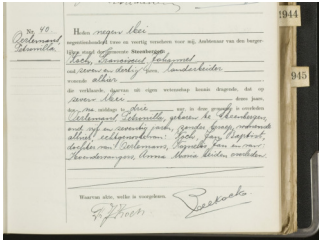 No 40.
Oerlemans,
Petronilla
Heden negen Mei
negentienhonderd twee en veertig verscheen voor mij, Ambtenaar van den burger-
lijken stand der gemeente Steenbergen:
Koch, Franciscus Johannes
oud zeven en dertig jaar, landarbeider
wonende alhier
die verklaarde, daarvan uit eigen wetenschap kennis dragende, dat op
zeven Mei dezes jaars,
des middags te drie uur, in deze gemeente is overleden
Oerlemans Petronilla, geboren te Steenbergen,
oud vijf en zeventig jaren, zonder beroep, wonende
alhier, echtgenoote van Koch, Jan Baptist,
dochter van Oerlemans, Cornelis Jan en van
Anna Maria beiden overleden
Waarvan akte, welke is voorgelezen.
F. J. Koch.
1944
945